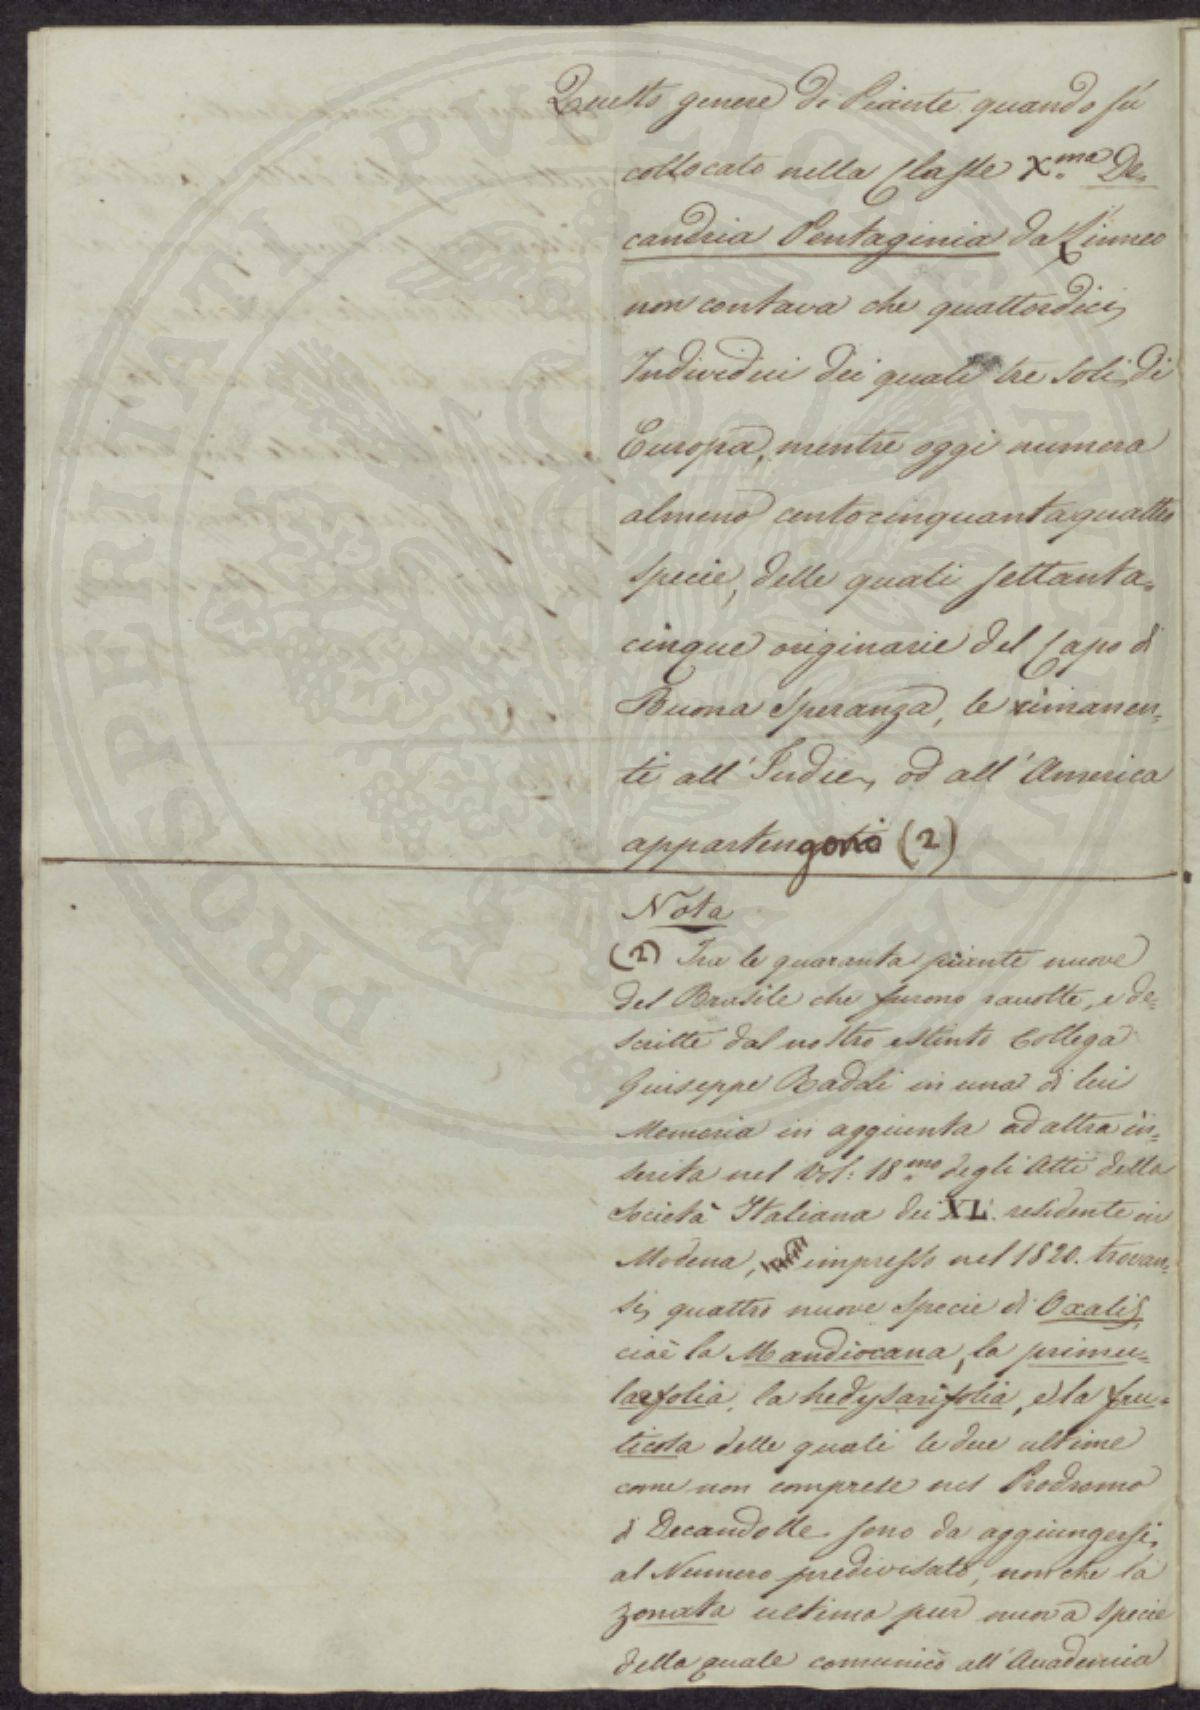 Questo genere di Piante quando fù
collocato nella Classe X.ma De-
candria Pentaginia da Linneo
non contava che quattordici
Individui dei quali tre soli di
Europa, mentre oggi numera
almeno centocinquantaquattro
specie, delle quali settanta-
cinque originarie del Capo di
Buona Speranza, le rimanen-
ti all'Indie, od all'America
appartengono (2)
Nota
(2) Tra le quaranta piante nuove
del Brasile che furono racolte, e de-
scritte dal nostro estinto Collega
Giuseppe Raddi in una di lui
Memoria in aggiunta ad altra in-
serita nel Vol: 18.mo degli Atti della
Società Italiana dei XL. residente in
Modena, impresso nel 1820. trovan-
si, quattro nuove specie di Oxalis,
cioè la Mandiocana, la primu-
laefolia, la hedysarifolia, e la fru-
ticosa delle quali le due ultime
come non comprese nel Prodromo
di Decandolle sono da aggiungersi,
al Numero predivisato, non che la
zonata ultima pur nuova specie
della quale comunicò all'Accademia
PROSPERITATI PUBLICAE AUGENDAE